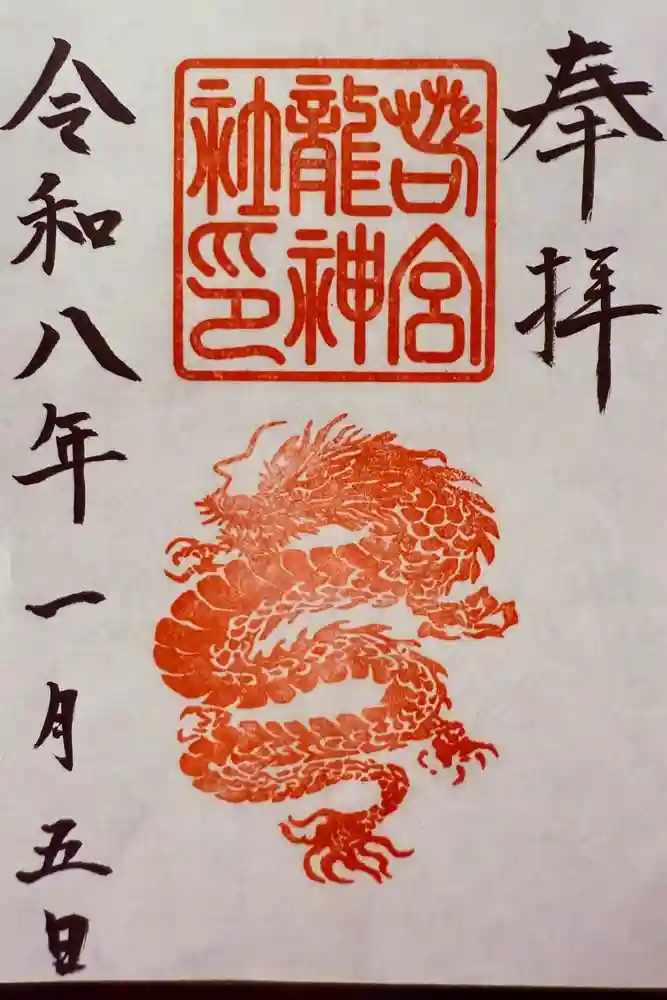 奉拝
若宮
龍神
社印
令和八年一月五日